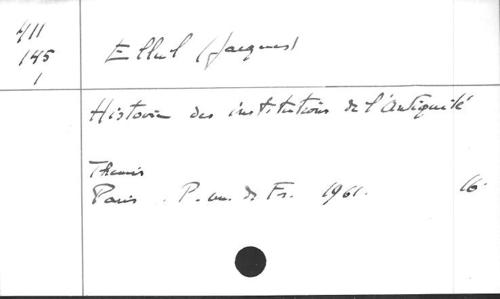 411
145
1
Ellul (Jacques)
Histoire des institutions de l'Antiquité
Themis
Paris . P. un. de Fr. 1961. 16.